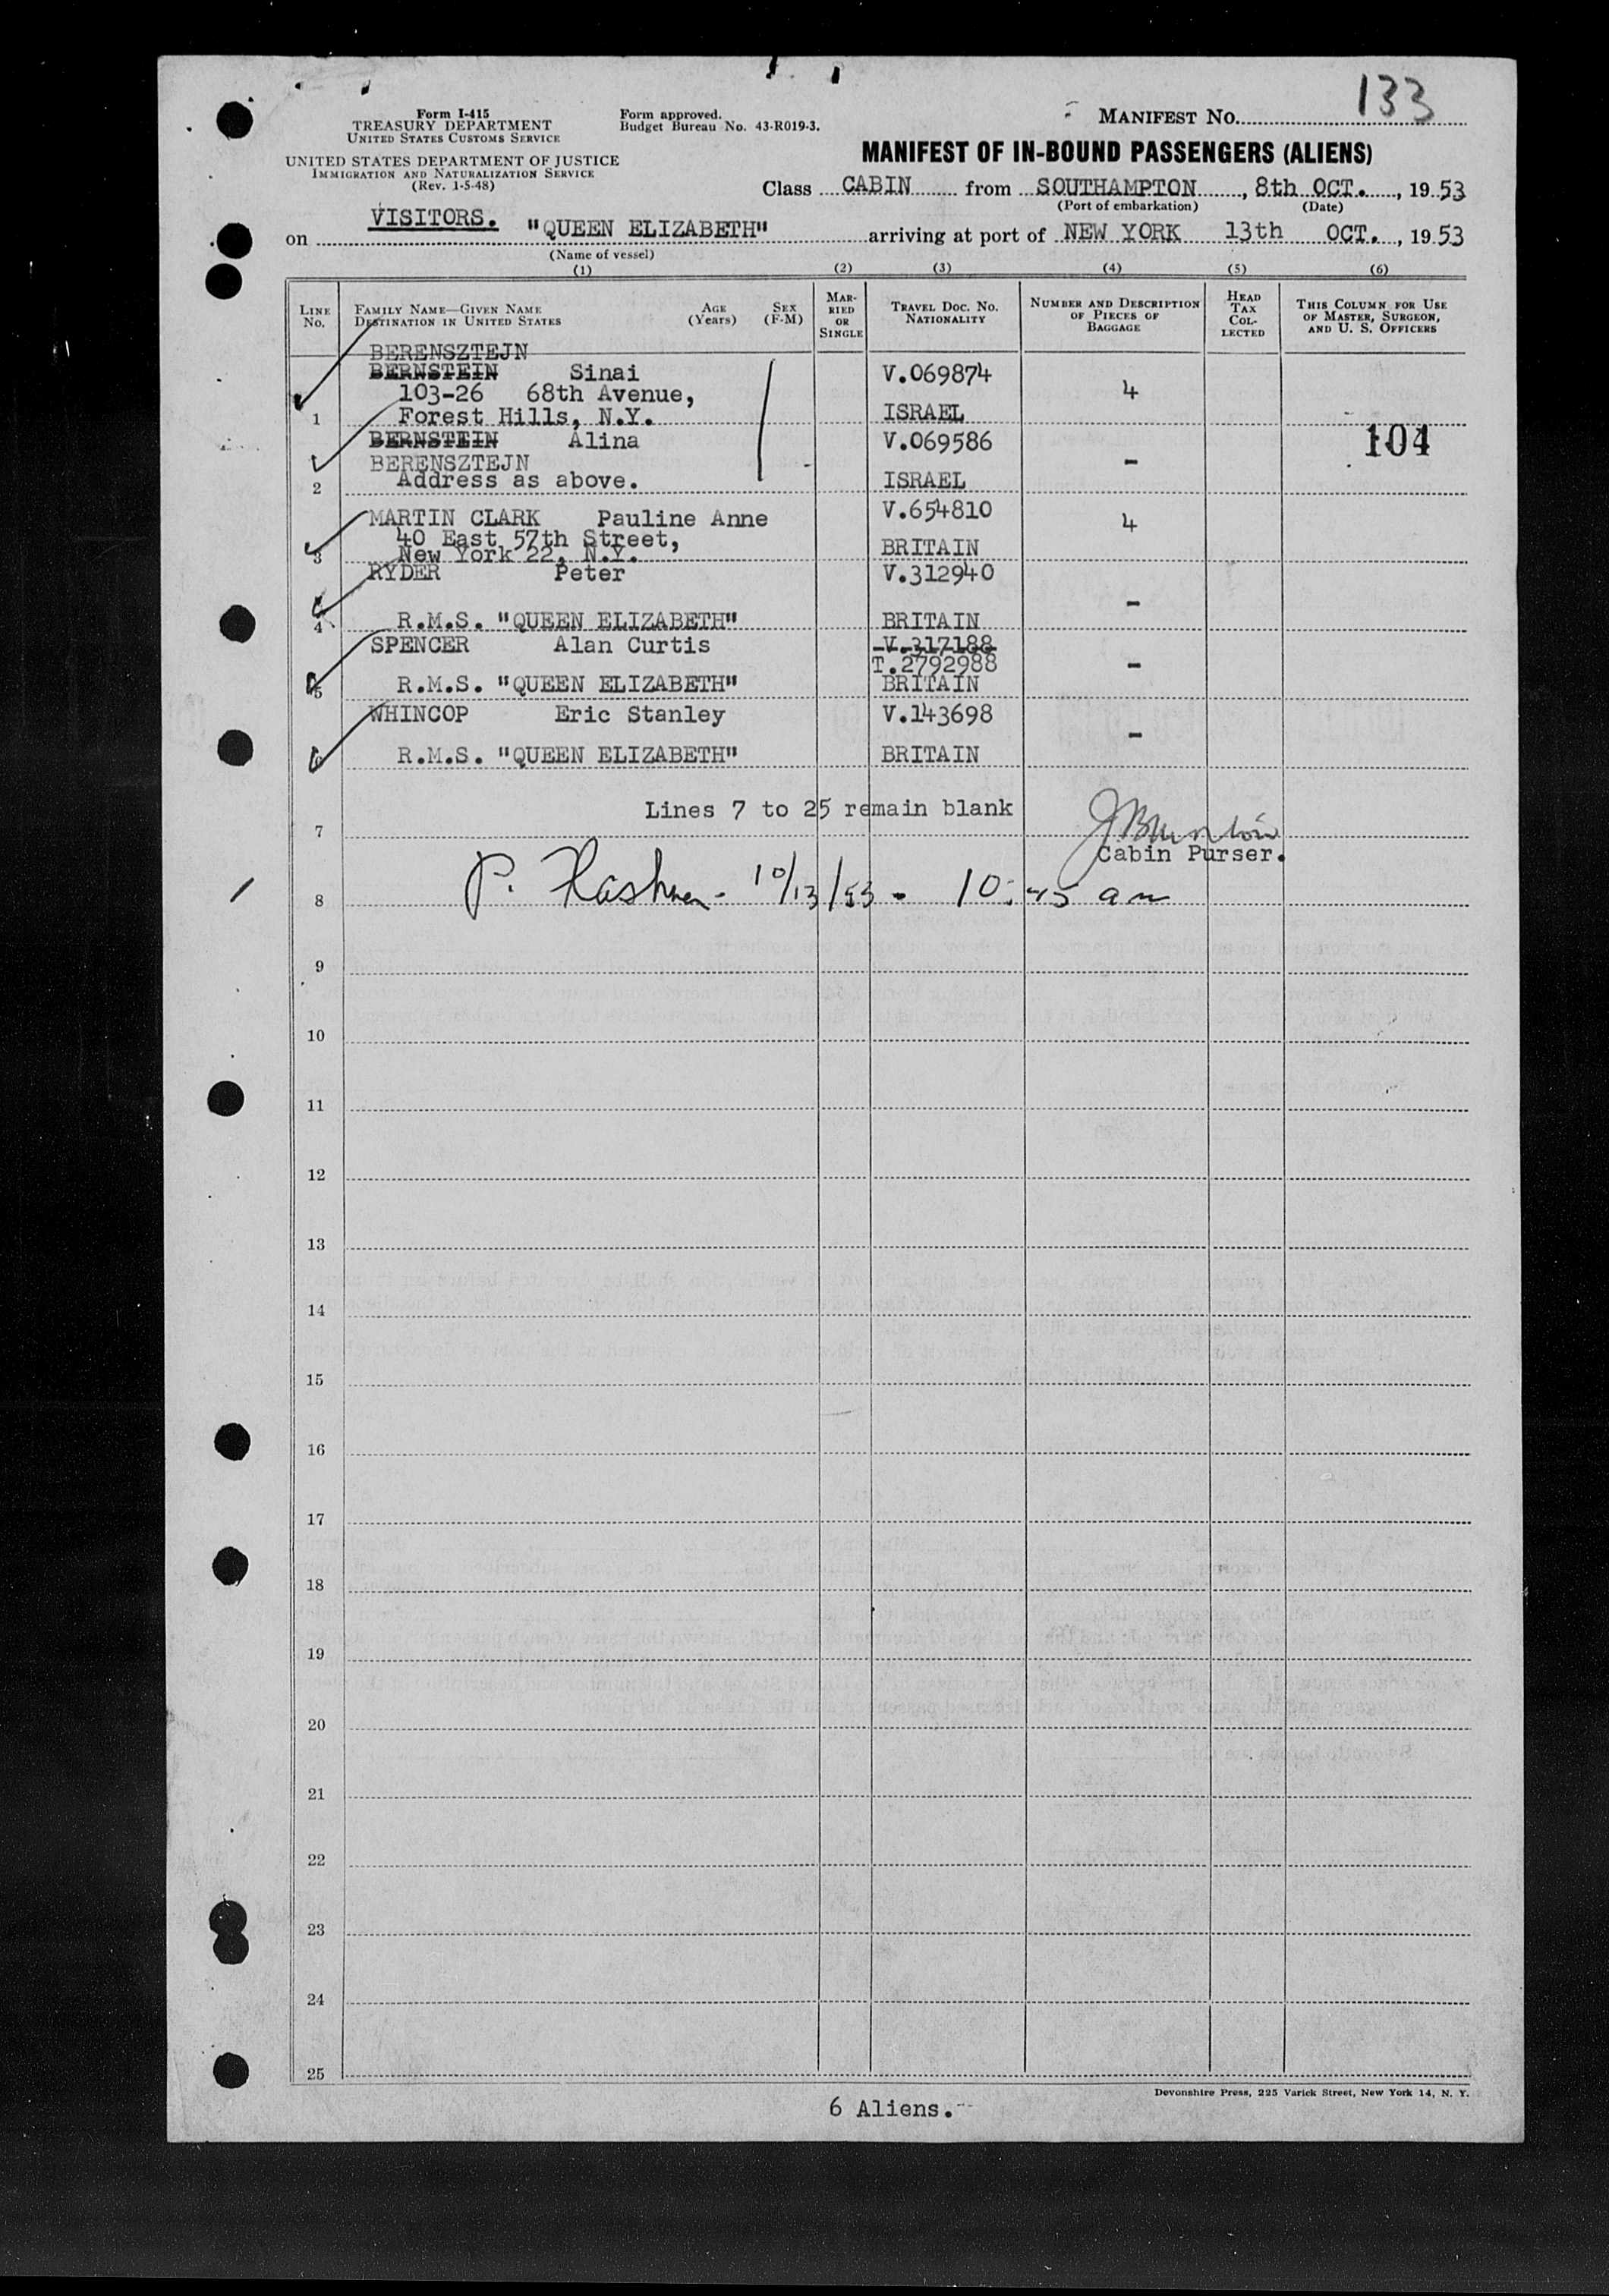 133
Form I-415
TREASURY DEPARTMENT
UNITED STATES CUSTOMS SERVICE
UNITED STATES DEPARTMENT OF JUSTICE
IMMIGRATION AND NATURALIZATION SERVICE
(Rev. 1-5-48)
Form approved.
Budget Bureau No. 43-R019-3.
MANIFEST NO.
MANIFEST OF IN-BOUND PASSENGERS (ALIENS)
Class CABIN from SOUTHAMPTON, 8th OCT., 1953
(Port of embarkation) (Date)
VISITORS.
on "QUEEN ELIZABETH" arriving at port of NEW YORK 13th OCT., 1953
(Name of vessel)
(1) (2) (3) (4) (5) (6)
LINE NO.
FAMILY NAME—GIVEN NAME
DESTINATION IN UNITED STATES
AGE (Years)
SEX (F-M)
MARRIED OR SINGLE
TRAVEL DOC. NO. NATIONALITY
NUMBER AND DESCRIPTION OF PIECES OF BAGGAGE
HEAD TAX COLLECTED
THIS COLUMN FOR USE OF MASTER, SURGEON, AND U. S. OFFICERS
BERENSZTEJN
BERNSTEIN Sinai V.069874
103-26 68th Avenue, 4
1 Forest Hills, N.Y. ISRAEL
BERNSTEIN Alina V.069586 104
BERENSZTEJN -
2 Address as above. ISRAEL
MARTIN CLARK Pauline Anne V.654810 4
40 East 57th Street,
3 New York 22, N.Y. BRITAIN
RYDER Peter V.312940
-
4 R.M.S. "QUEEN ELIZABETH" BRITAIN
SPENCER Alan Curtis V.317188
T.2792988 -
5 R.M.S. "QUEEN ELIZABETH" BRITAIN
WHINCOP Eric Stanley V.143698
-
6 R.M.S. "QUEEN ELIZABETH" BRITAIN
Lines 7 to 25 remain blank
7
Cabin Purser.
8 P. 10/13/53 - 10:45 am
9
10
11
12
13
14
15
16
17
18
19
20
21
22
23
24
25
Devonshire Press, 225 Varick Street, New York 14, N. Y.
6 Aliens.